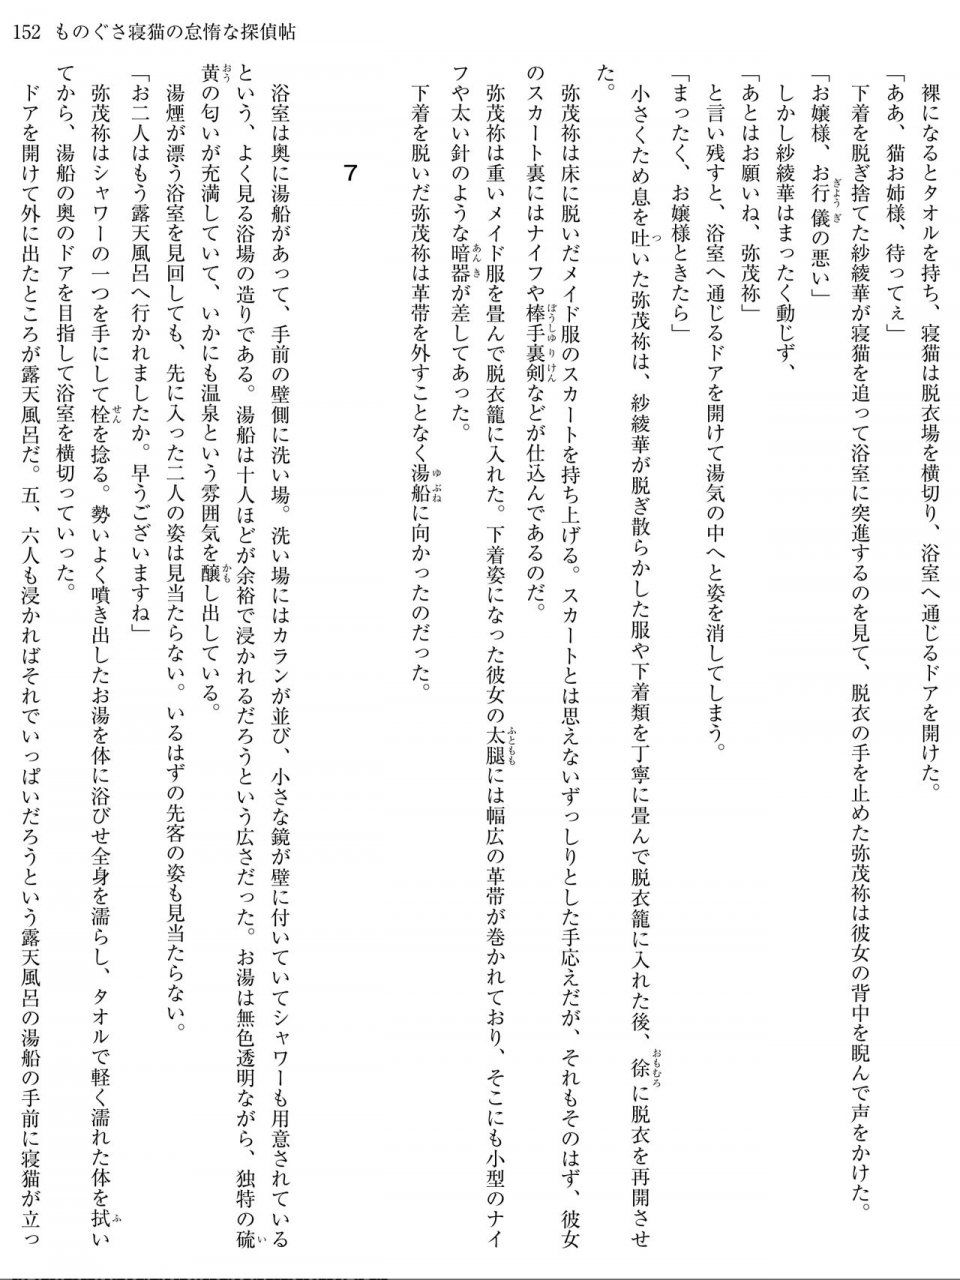 152 ものぐさ寝猫の怠惰な探偵帖
裸になるとタオルを持ち、寝猫は脱衣場を横切り、浴室へ通じるドアを開けた。
「ああ、猫お姉様、待ってぇ」
下着を脱ぎ捨てた紗綾華が寝猫を追って浴室に突進するのを見て、脱衣の手を止めた弥茂祢は彼女の背中を睨んで声をかけた。
「お嬢様、お行儀の悪い」
しかし紗綾華はまったく動じず、
「あとはお願いね、弥茂祢」
と言い残すと、浴室へ通じるドアを開けて湯気の中へと姿を消してしまう。
「まったく、お嬢様ときたら」
小さくため息を吐いた弥茂祢は、紗綾華が脱ぎ散らかした服や下着類を丁寧に畳んで脱衣籠に入れた後、徐に脱衣を再開させ
た。
弥茂祢は床に脱いだメイド服のスカートを持ち上げる。スカートとは思えないずっしりとした手応えだが、それもそのはず、彼女
のスカート裏にはナイフや棒手裏剣などが仕込んであるのだ。
弥茂祢は重いメイド服を畳んで脱衣籠に入れた。下着姿になった彼女の太腿には幅広の革帯が巻かれており、そこにも小型のナイ
フや太い針のような暗器が差してあった。
下着を脱いだ弥茂祢は革帯を外すことなく湯船に向かったのだった。
7
浴室は奥に湯船があって、手前の壁側に洗い場。洗い場にはカランが並び、小さな鏡が壁に付いていてシャワーも用意されている
という、よく見る浴場の造りである。湯船は十人ほどが余裕で浸かれるだろうという広さだった。お湯は無色透明ながら、独特の硫
黄の匂いが充満していて、いかにも温泉という雰囲気を醸し出している。
湯煙が漂う浴室を見回しても、先に入った二人の姿は見当たらない。いるはずの先客の姿も見当たらない。
「お二人はもう露天風呂へ行かれましたか。早うございますね」
弥茂祢はシャワーの一つを手にして栓を捻る。勢いよく噴き出したお湯を体に浴びせ全身を濡らし、タオルで軽く濡れた体を拭い
てから、湯船の奥のドアを目指して浴室を横切っていった。
ドアを開けて外に出たところが露天風呂だ。五、六人も浸かればそれでいっぱいだろうという露天風呂の湯船の手前に寝猫が立っ